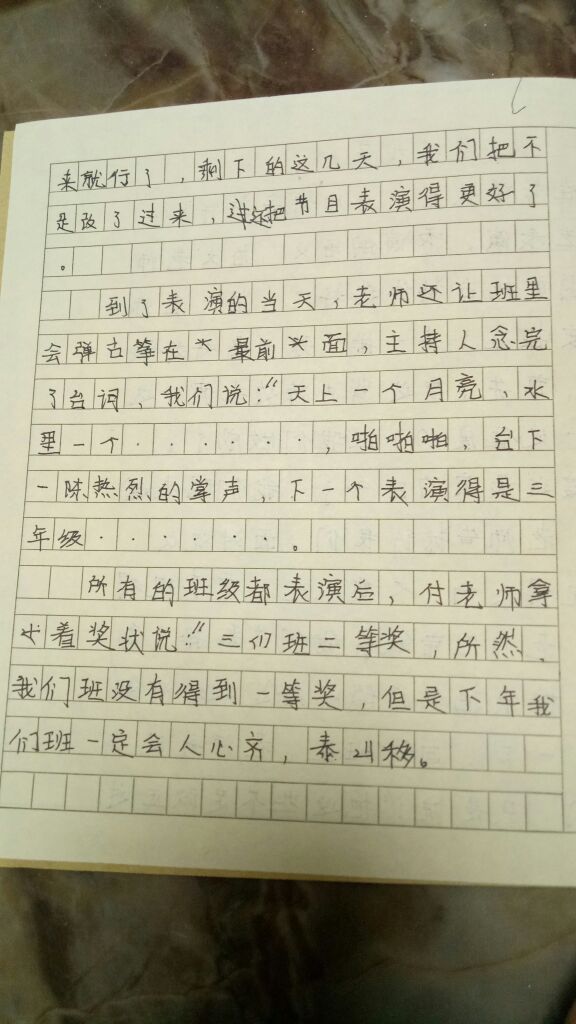 来就行了，剩下的这几天，我们把不
是改了过来，过还把节目表演得更好了
。
到了表演的当天，老师还让班里
会弹古筝在最前面，主持人念完
了台词，我们说：“天上一个月亮，水
里一个·······，啪啪啪，台下
一陈热烈的掌声，下一个表演得是三
年级······。
所有的班级都表演后，付老师拿
着奖状说：“三们班二等奖，所然，
我们班没有得到一等奖，但是下年我
们班一定会人心齐，泰山移。